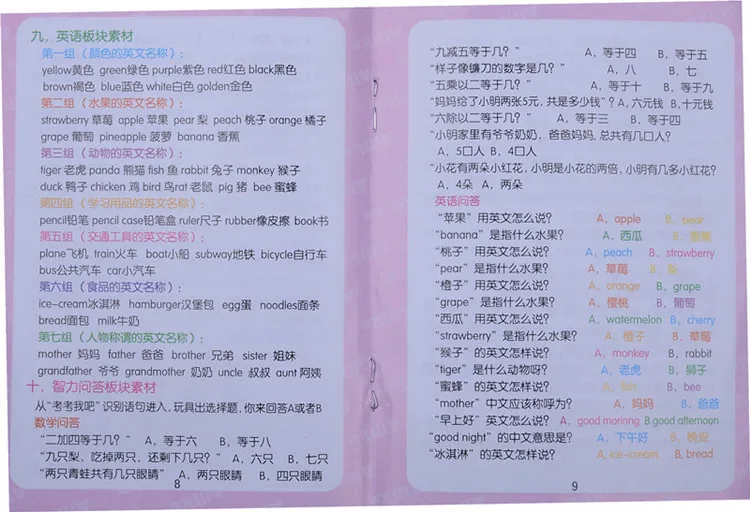 九、英语板块素材
第一组（颜色的英文名称）：
yellow黄色 green绿色 purple紫色 red红色 black黑色
brown褐色 blue蓝色 white白色 golden金色
第二组（水果的英文名称）：
strawberry 草莓 apple 苹果 pear 梨 peach 桃子 orange 橘子
grape 葡萄 pineapple 菠萝 banana 香蕉
第三组（动物的英文名称）：
tiger 老虎 panda 熊猫 fish 鱼 rabbit 兔子 monkey 猴子
duck 鸭子 chicken 鸡 bird 鸟 rat 老鼠 pig 猪 bee 蜜蜂
第四组（学习用品的英文名称）：
pencil铅笔 pencil case铅笔盒 ruler尺子 rubber橡皮擦 book书
第五组（交通工具的英文名称）：
plane飞机 train火车 boat小船 subway地铁 bicycle自行车
bus公共汽车 car小汽车
第六组（食品的英文名称）：
ice-cream冰淇淋 hamburger汉堡包 egg蛋 noodles面条
bread面包 milk牛奶
第七组（人物称谓的英文名称）：
mother 妈妈 father 爸爸 brother 兄弟 sister 姐妹
grandfather 爷爷 grandmother 奶奶 uncle 叔叔 aunt 阿姨
十、智力问答板块素材
从“考考我吧”识别语句进入，玩具出选择题，你来回答A或者B
数学问答
“二加四等于几？” A，等于六 B，等于八
“九只梨，吃掉两只，还剩下几只？” A，六只 B，七只
“两只青蛙共有几只眼睛” A，两只眼睛 B，四只眼睛
8
“九减五等于几？” A，等于四 B，等于五
“样子像镰刀的数字是几？” A，八 B，七
“五乘以二等于几？” A，等于十 B，等于九
“妈妈给了小明两张5元，共是多少钱”？A，六元钱 B,十元钱
“六除以二等于几？” A，等于三 B，等于四
“小明家里有爷爷奶奶，爸爸妈妈，总共有几口人？
A，5口人 B，4口人
“小花有两朵小红花，小明是小花的两倍，小明有几多小红花？
A，4朵 A，两朵
英语问答
“苹果”用英文怎么说？ A，apple B，pear
“banana”是指什么水果？ A，西瓜 B，香蕉
“桃子”用英文怎么说？ A，peach B，strawberry
“pear”是指什么水果？ A，草莓 B，梨
“橙子”用英文怎么说？ A，orange B，grape
“grape”是指什么水果？ A，樱桃 B，葡萄
“西瓜”用英文怎么说？ A，watermelon B，cherry
“strawberry”是指什么水果？ A，橙子 B，草莓
“猴子”的英文怎样说？ A，monkey B，rabbit
“tiger”是什么动物呀？ A，老虎 B，狮子
“蜜蜂”的英文怎样说？ A，fish B，bee
“mother”中文应该称呼为？ A，妈妈 B，爸爸
“早上好”英文怎么说？ A，good moriong B,good afternoon
“good night”的中文意思是？ A，下午好 B，晚安
“冰淇淋”的英文怎样说？ A, ice-cream B, bread
9